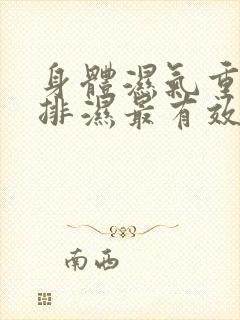 身體濕氣重
排濕最有效
南西